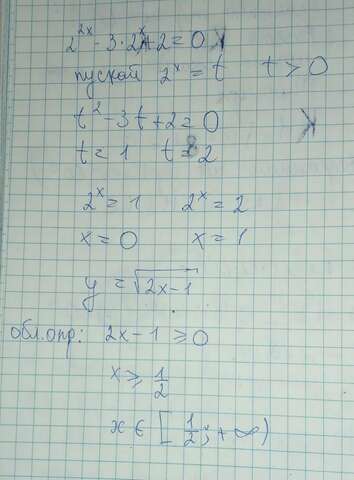 2^{2x} - 3 · 2^x + 2 = 0
пускай 2^x = t t > 0
t^2 - 3t + 2 = 0
t = 1 t = 2
2^x = 1 2^x = 2
x = 0 x = 1
y = √(2x-1)
обл.опр: 2x - 1 ≥ 0
x ≥ 1/2
x ∈ [1/2; +∞)